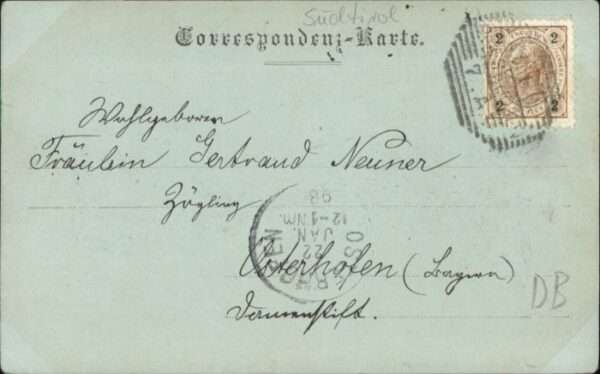 Südtirol
Correspondenz-Karte.
2 2
2 2
Wohlgeboren
Fräulein Gertraud Neuner
Zögling
Osterhofen (Bayern)
Damenstift.
OSTERHOFEN
22
JAN.
12-1 Nm.
98
DB